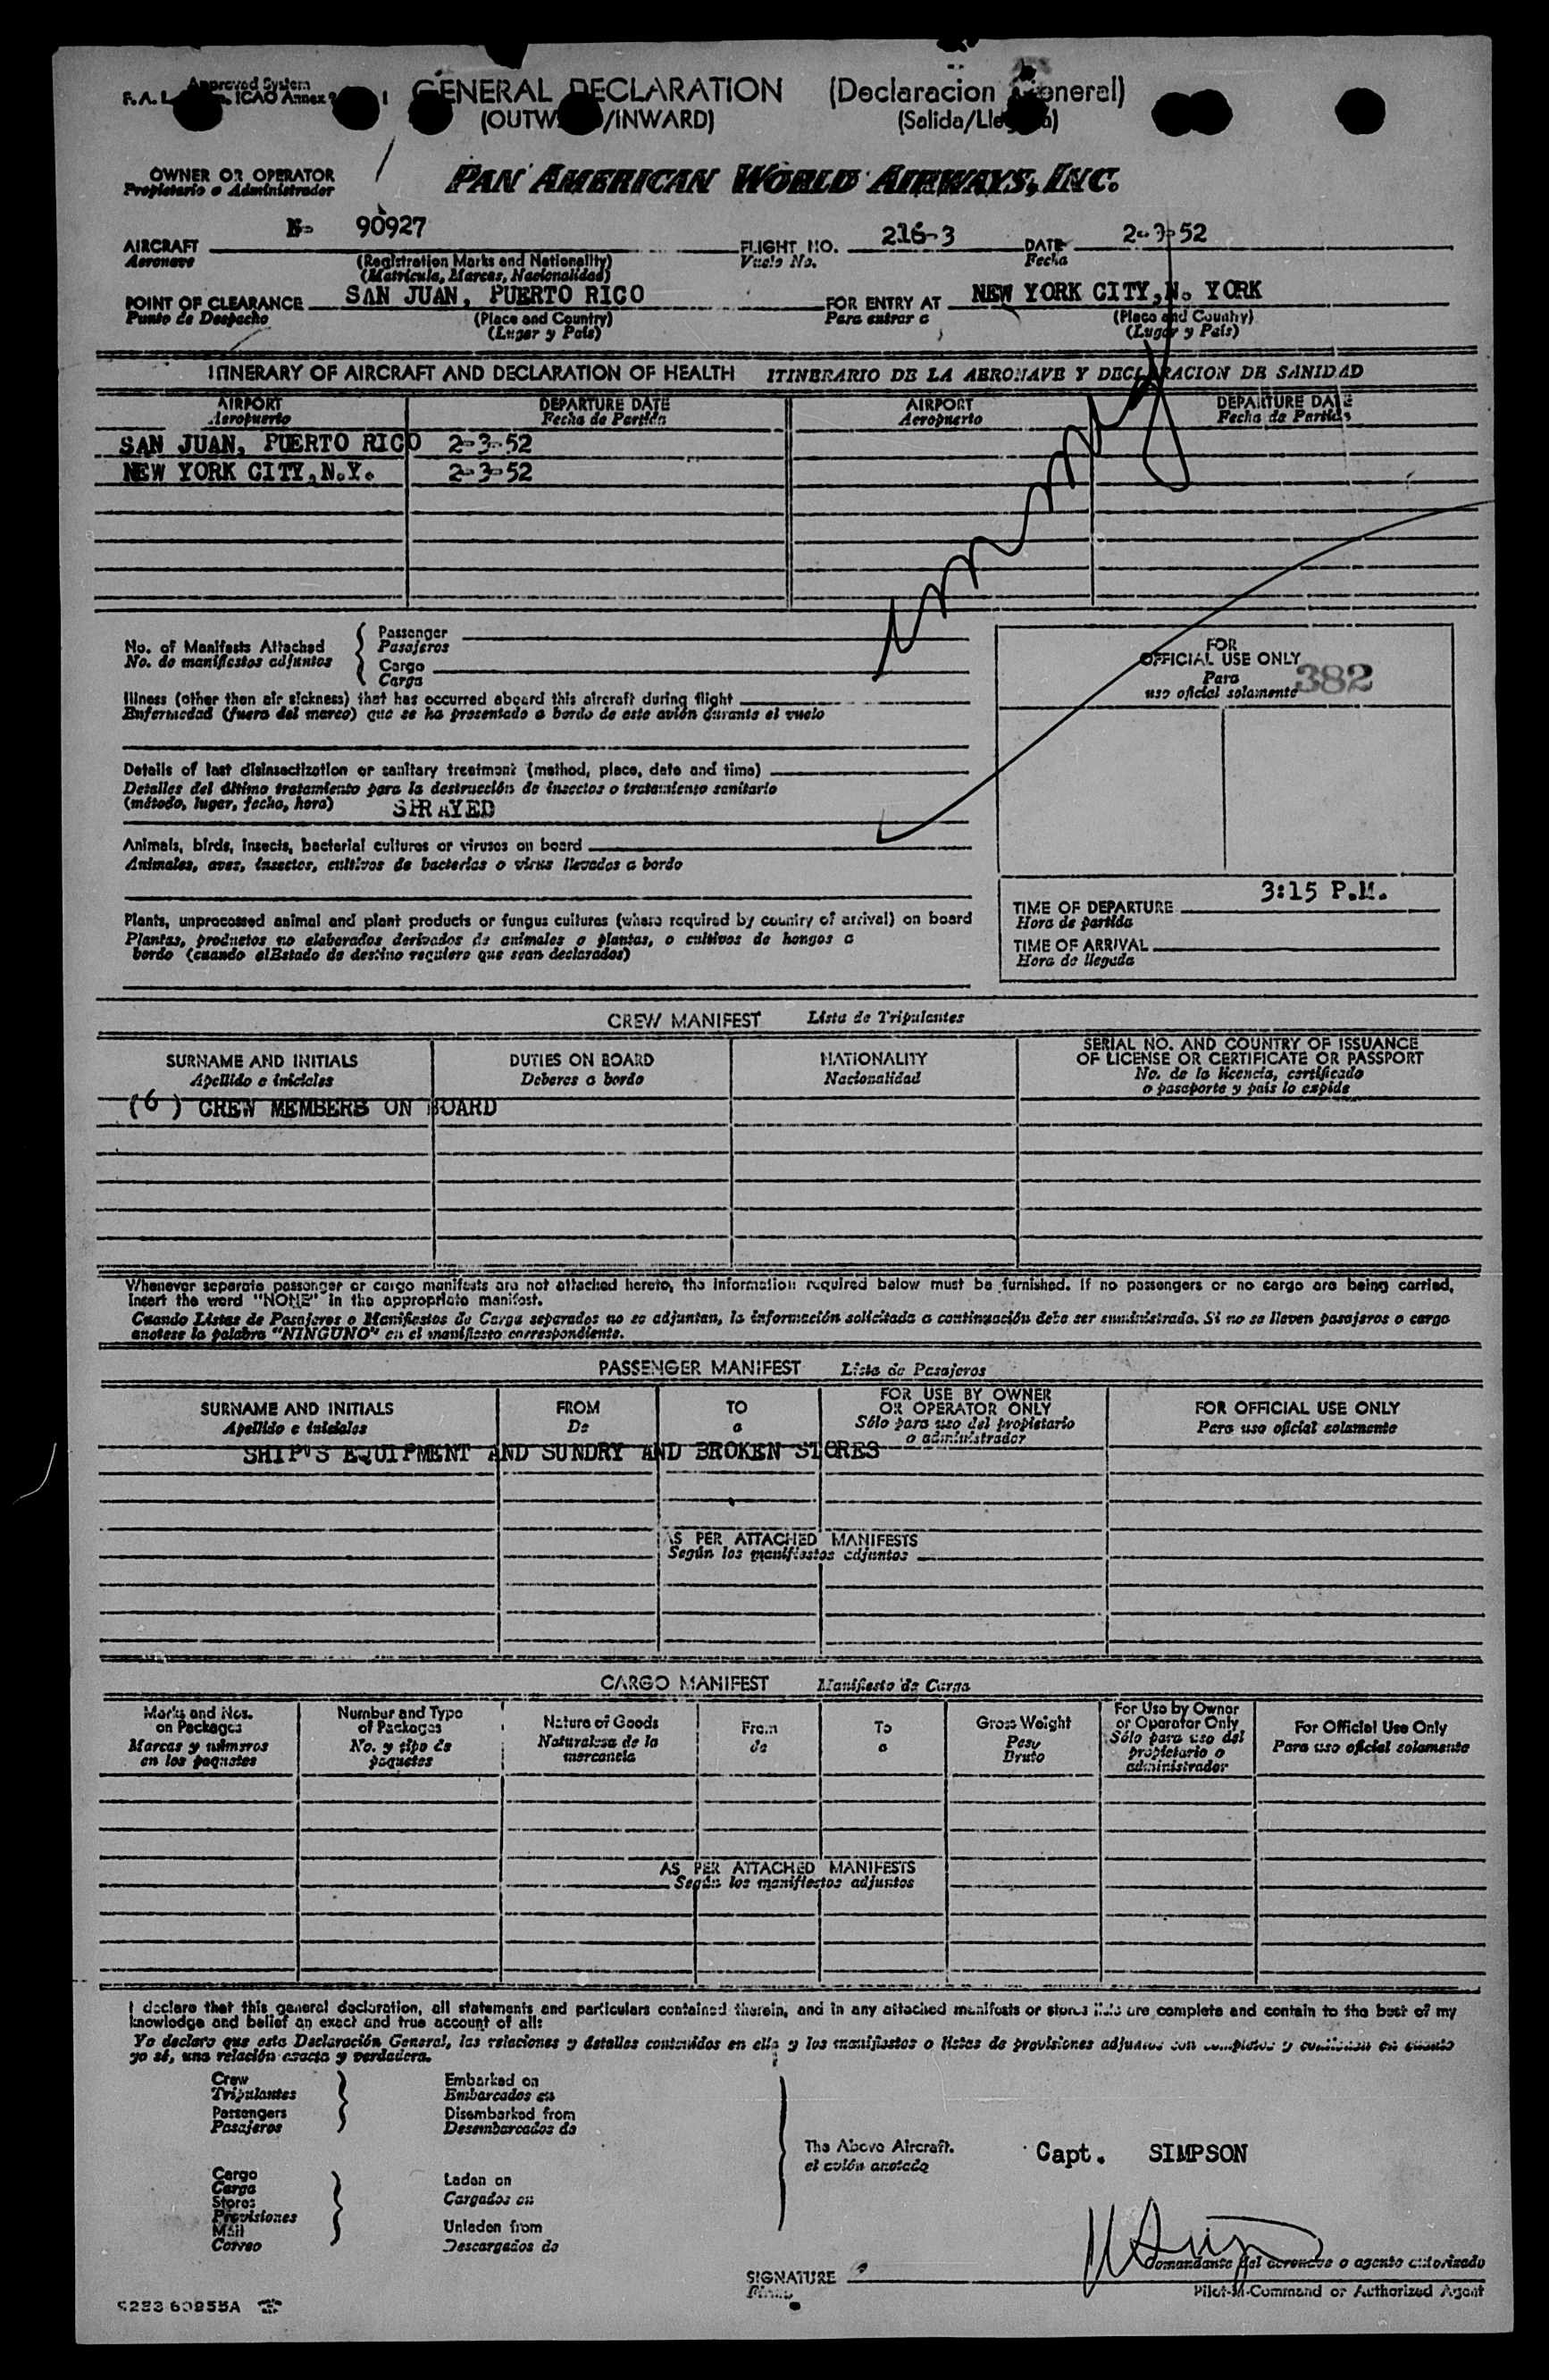 Approved System
F. A. L. ICAO Annex 9
GENERAL DECLARATION (Declaracion General)
(OUTWARD/INWARD) (Salida/Llegada)
OWNER OR OPERATOR
Propietario o Administrador
PAN AMERICAN WORLD AIRWAYS, INC.
N- 90927 216-3 2-3-52
AIRCRAFT FLIGHT NO. DATE
Aeronave (Registration Marks and Nationality) Vuelo No. Fecha
(Matricula, Marcas, Nacionalidad)
POINT OF CLEARANCE SAN JUAN, PUERTO RICO FOR ENTRY AT NEW YORK CITY, N. YORK
Punto de Despacho (Place and Country) Para entrar a (Place and Country)
(Lugar y País) (Lugar y País)
ITINERARY OF AIRCRAFT AND DECLARATION OF HEALTH ITINERARIO DE LA AERONAVE Y DECLARACION DE SANIDAD
AIRPORT DEPARTURE DATE AIRPORT DEPARTURE DATE
Aeropuerto Fecha de Partida Aeropuerto Fecha de Partida
SAN JUAN, PUERTO RICO 2-3-52
NEW YORK CITY, N.Y. 2-3-52
No. of Manifests Attached Passenger
No. de manifiestos adjuntos Pasajeros
Cargo
Carga
FOR
OFFICIAL USE ONLY
Para
uso oficial solamente 382
Illness (other than air sickness) that has occurred aboard this aircraft during flight
Enfermedad (fuera del mareo) que se ha presentado a bordo de este avión durante el vuelo
Details of last disinsectization or sanitary treatment (method, place, date and time)
Detalles del último tratamiento para la destrucción de insectos o tratamiento sanitario
(método, lugar, fecha, hora) SPRAYED
Animals, birds, insects, bacterial cultures or viruses on board
Animales, aves, insectos, cultivos de bacterias o virus llevados a bordo
Plants, unprocessed animal and plant products or fungus cultures (where required by country of arrival) on board
Plantas, productos no elaborados derivados de animales o plantas, o cultivos de hongos a
bordo (cuando elEstado de destino requiere que sean declarados)
3:15 P.M.
TIME OF DEPARTURE
Hora de partida
TIME OF ARRIVAL
Hora de llegada
CREW MANIFEST Lista de Tripulantes
SURNAME AND INITIALS DUTIES ON BOARD NATIONALITY SERIAL NO. AND COUNTRY OF ISSUANCE
OF LICENSE OR CERTIFICATE OR PASSPORT
Apellido e iniciales Deberes a bordo Nacionalidad No. de la licencia, certificado
o pasaporte y país lo expide
(6) CREW MEMBERS ON BOARD
Whenever separate passenger or cargo manifests are not attached hereto, the information required below must be furnished. If no passengers or no cargo are being carried,
insert the word "NONE" in the appropriate manifest.
Cuando Listas de Pasajeros o Manifiestos de Carga separados no se adjuntan, la información solicitada a continuación debe ser suministrada. Si no se lleven pasajeros o carga
anotese la palabra "NINGUNO" en el manifiesto correspondiente.
PASSENGER MANIFEST Lista de Pasajeros
SURNAME AND INITIALS FROM TO FOR USE BY OWNER
OR OPERATOR ONLY FOR OFFICIAL USE ONLY
Apellido e iniciales De a Sólo para uso del propietario
o administrador Para uso oficial solamente
SHIP'S EQUIPMENT AND SUNDRY AND BROKEN STORES
AS PER ATTACHED MANIFESTS
Según los manifiestos adjuntos
CARGO MANIFEST Manifiesto de Carga
Marks and Nos.
on Packages
Marcas y números
en los paquetes
Number and Type
of Packages
No. y tipo de
paquetes
Nature of Goods
Naturalesa de la
mercancia
From
de
To
a
Gross Weight
Peso
Bruto
For Use by Owner
or Operator Only
Sólo para uso del
propietario o
administrador
For Official Use Only
Para uso oficial solamente
AS PER ATTACHED MANIFESTS
Según los manifiestos adjuntos
I declare that this general declaration, all statements and particulars contained therein, and in any attached manifests or stores lists are complete and contain to the best of my
knowledge and belief an exact and true account of all:
Yo declaro que esta Declaración General, las relaciones y detalles contenidos en ella y los manifiestos o listas de provisiones adjuntos son completos y contienen en cuanto
yo sé, una relación exacta y verdadera.
Crew Embarked on
Tripulantes Embarcados en
Passengers Disembarked from
Pasajeros Desembarcados de
The Above Aircraft.
el avión anotado
Capt. SIMPSON
Cargo Laden on
Carga Cargados en
Stores
Provisiones
Mail Unladen from
Correo Descargados de
SIGNATURE Comandante del aeronave o agente autorizado
Firma Pilot-in-Command or Authorized Agent